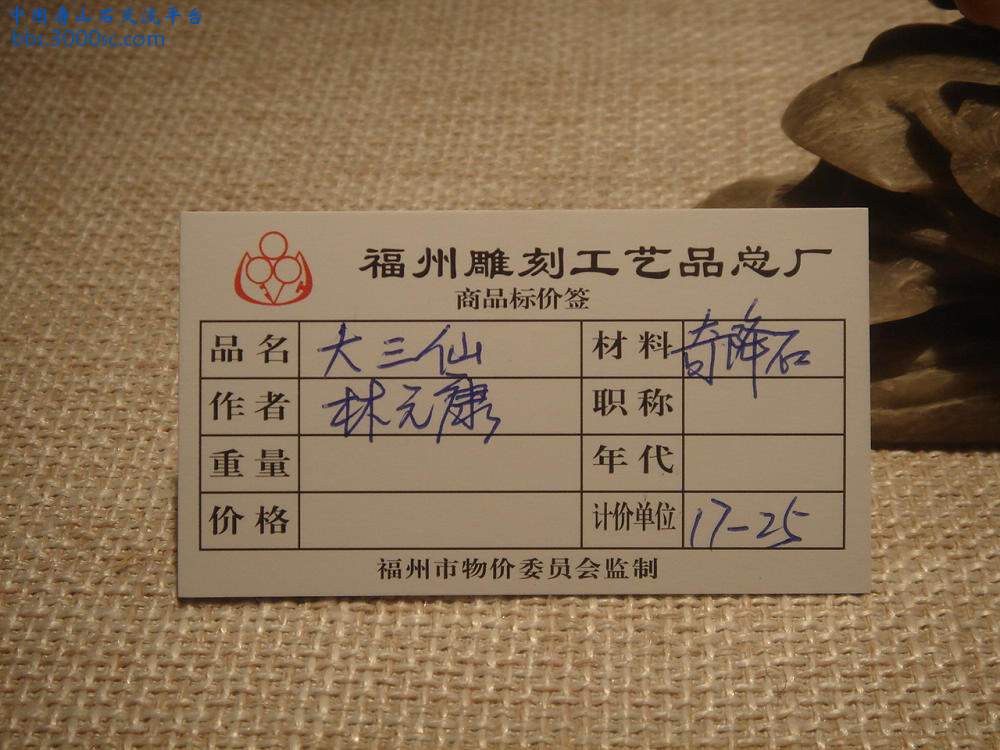 中国寿山石交流平台
bbs.3000ic.com
福州雕刻工艺品总厂
商品标价签
品名 大三仙 材料 奇降石
作者 林元康 职称
重量 年代
价格 计价单位 17-25
福州市物价委员会监制